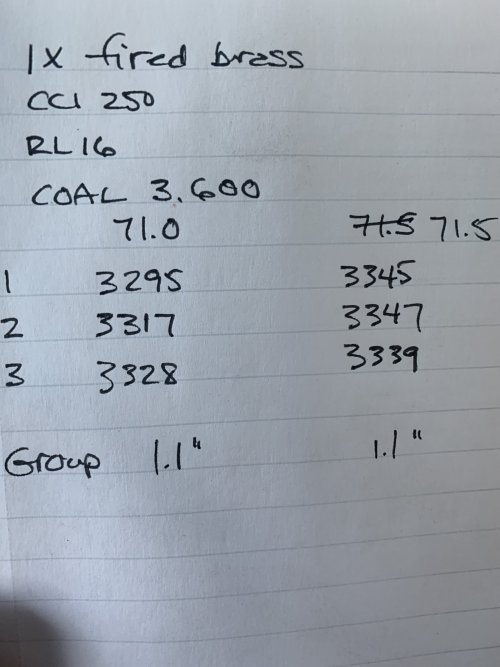 1X fired brass
CCI 250
RL16
COAL 3.600
71.0 71.5 71.5
1 3295 3345
2 3317 3347
3 3328 3339
Group 1.1" 1.1"